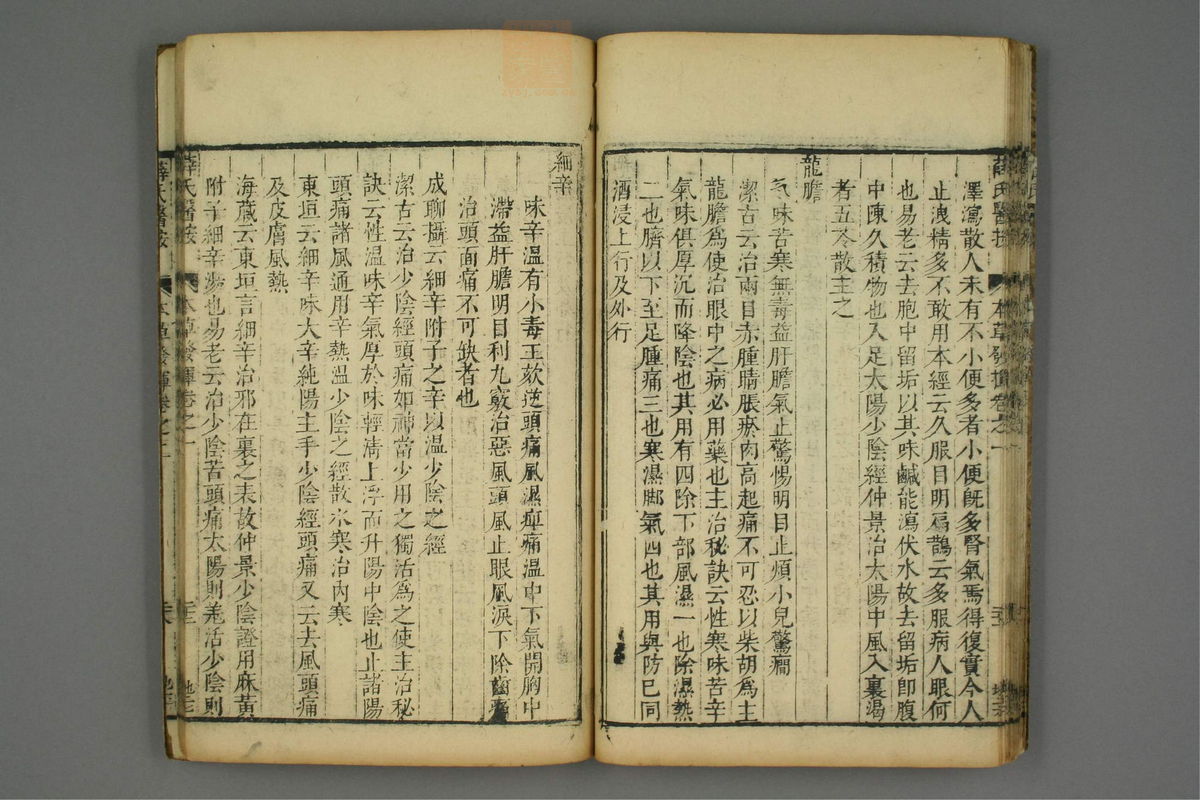 薛氏醫按 本草發揮卷之一
澤瀉散人未有不小便多者小便旣多腎氣焉得復實今人
止洩精多不敢用本經云久服目明扁鵲云多服病人眼何
也易老云去胞中留垢以其味鹹能瀉伏水故去留垢卽腹
中陳久積物也入足太陽少陰經仲景治太陽中風入裏渴
者五苓散主之
龍膽
氣味苦寒無毒益肝膽氣止驚惕明目止煩小兒驚癇
潔古云治兩目赤腫睛脹瘀肉高起痛不可忍以柴胡爲主
龍膽爲使治眼中之病必用藥也主治秘訣云性寒味苦辛
氣味俱厚沉而降陰也其用有四除下部風濕一也除濕熱
二也臍以下至足腫痛三也寒濕脚氣四也其用與防巳同
酒浸上行及外行
細辛
味辛溫有小毒主欬逆頭痛風濕痺痛溫中下氣開胸中
滯益肝膽明目利九竅治惡風頭風止眼風淚下除齒痛
治頭面痛不可缺者也
成聊攝云細辛附子之辛以溫少陰之經
潔古云治少陰經頭痛如神當少用之獨活爲之使主治秘
訣云性溫味辛氣厚於味輕淸上浮而升陽中陰也止諸陽
頭痛諸風通用辛熱溫少陰之經散水寒治內寒
東垣云細辛味大辛純陽主手少陰經頭痛又云去風頭痛
及皮膚風熱
海藏云東垣言細辛治邪在裏之表故仲景少陰證用麻黃
附子細辛湯也易老云治少陰苦頭痛太陽則羌活少陰則
薛氏醫按 本草發揮卷之一